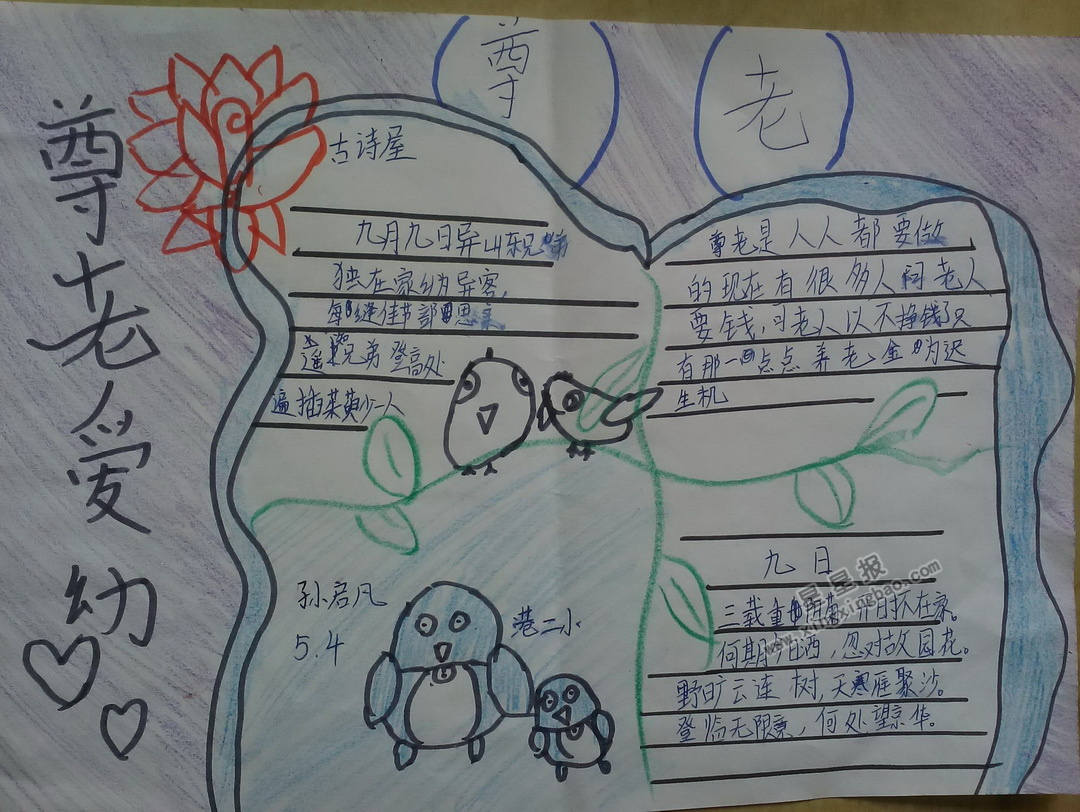 尊老
尊老爱幼
古诗屋
九月九日异山东兄弟
独在家乡为异客,
每逢佳节部思亲
遥兄弟登高处
遍插茱萸少一人
尊老是人人都要做
的现在有很多人问老人
要钱,可老人以不挣钱了只
有那一点点养老金为迟
生机
九日
三载重
何期汧西,忽对故园花。
野旷云连树,天寒雁聚沙。
登临无限意,何处望京华。
孙启凡
5.4
港二小
星星报
www.xingxingbao.com